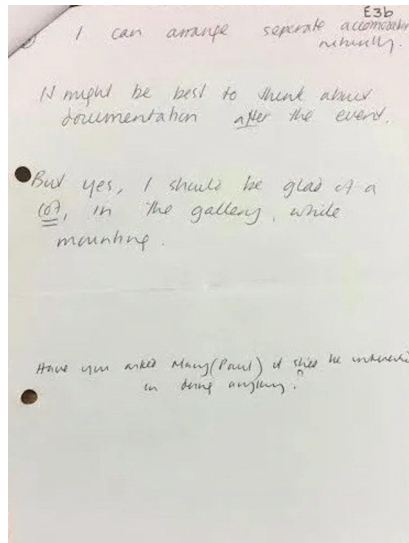 E3b
I can arrange seperate accomodation
naturally.
It might be best to think about
documentation after the event.
But yes, I should be glad of a
cot, in the gallery, while
mounting.
Have you asked Mary (Paul) if she'd be interested
in doing anything?